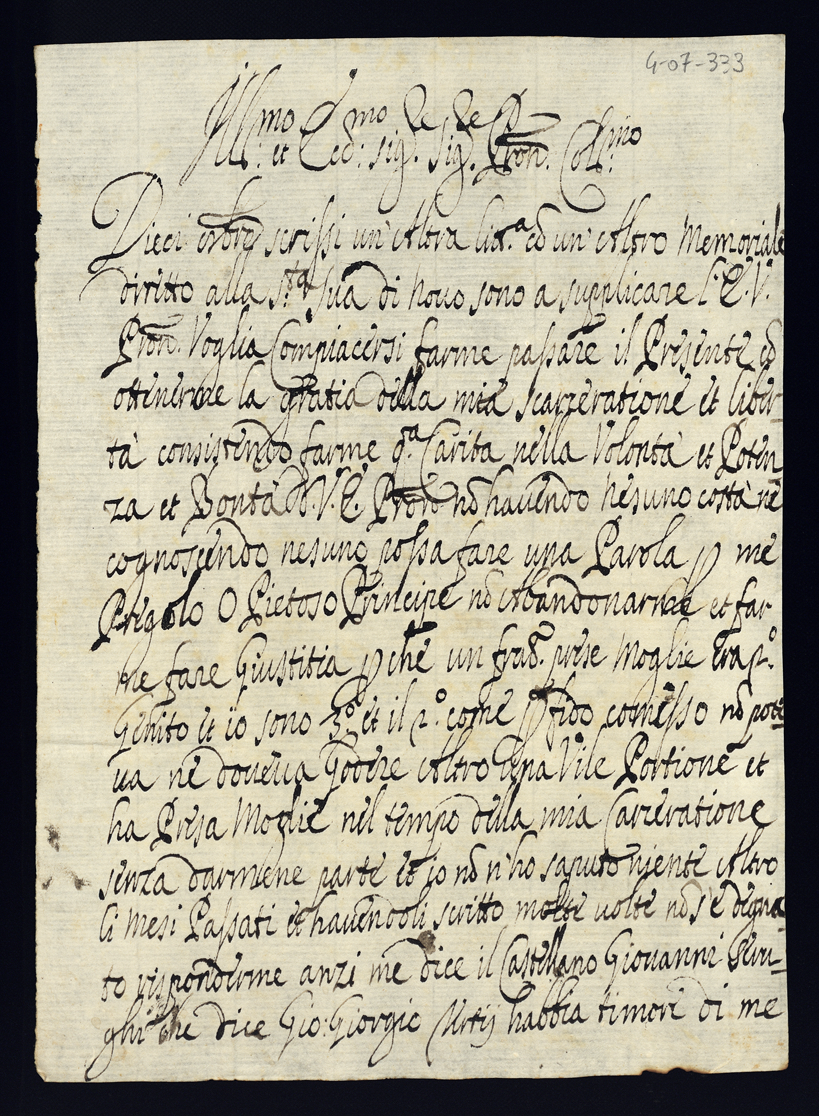 4-07-333
Ill:mo et Ecc:mo Sig.re Sig.re Pron. Coll:mo
Dieci scrissi un' Altra litt.a cō un' Altro Memoriale
diritto alla S.tà Sua di novo sono a supplicare l'E.V.
Pron. Voglia Compiacersi farme passare il Presente cō
ottenerme la gratia della mia scarzeratione et liber-
tà consistendo farme q.a Carita nella Volontà et Poten-
za et Bontà di V.E. Prone nō havendo nesuno costà nè
cognoscendo nesuno possa fare una Parola p me
Pregolo O Pietoso Principe nō Abandonarme et far
me fare Giustitia p che un frat. prese Moglie era p.o
Genito et io sono 3.o et il 2.o come p fido comesso nō pote
va nè doveva Godere Altro una Vile Portione et
ha Presa Moglie nel tempo della mia Carzeratione
senza darmene parte et io nō n'ho saputo niente Altro
li Mesi Passati et havendoli scritto molte volte nō s'è degna-
to rispondenrme anzi me dice il Castellano Giovanni
che dice Gio: Giorgio habbia timori di me